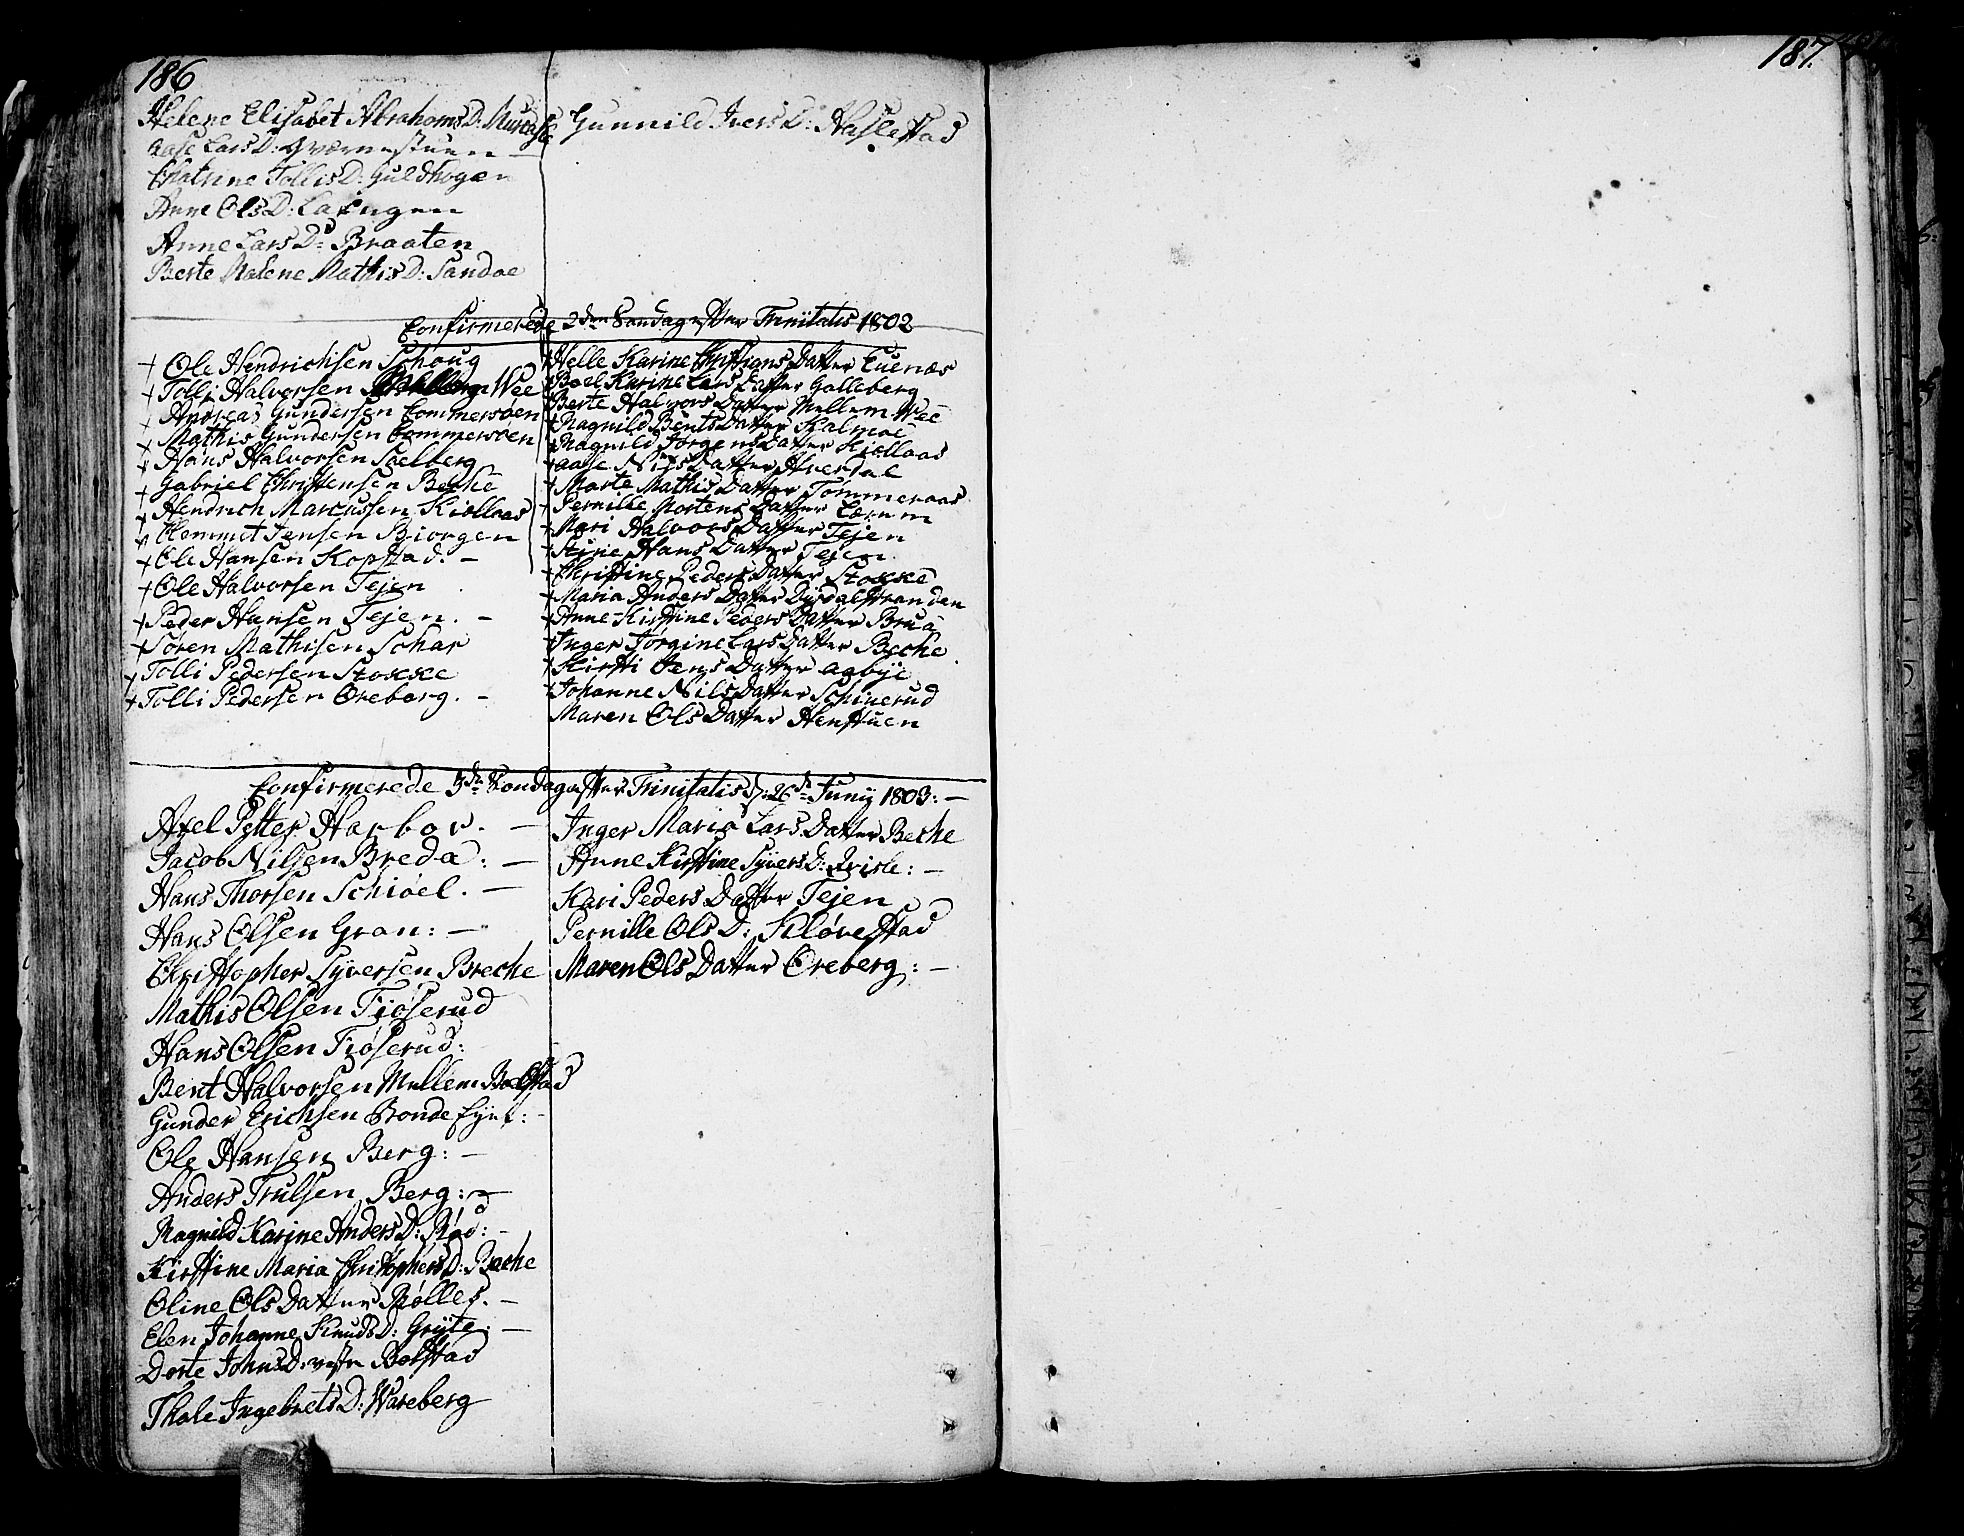 186
Helene Elisabet Abrahams D:
Aase Lars D: Qværnestuen
Chatrine Tollis D: Guldhogen
Anne Ols D: Løkingen
Anne Lars D: Braaten
Berte Malene Mathis D: Sandøe
Gunnild Ivers D: Haslestad
Confirmerede 2den Søndag efter Trinitatis 1802
+ Ole Hendrichsen Schoug
+ Tolli Halvorsen Wee
+ Andreas Gundersen Commersøen
+ Mathis Gundersen Commersøen
+ Hans Halvorsen Soelberg
+ Gabriel Christensen Beche
+ Hendrich Marcussen Kiøllaas
+ Clemmit Jensen Biørgen
+ Ole Hansen Kopstad. -
+ Ole Halvorsen Tejen
+ Peder Hansen Tejen. -
+ Søren Mathisen Schar
+ Tolli Pedersen Stokke
+ Tolli Pedersen Oreborg. -
+ Helle Karine Christians Datter Tuenæs
+ Boel Karine Lars Datter Galleberg
+ Berte Halvors Datter Mellem Wee
+ Ragnild Bents Datter Kalmoe
+ Ragnild Jørgens Datter Kiøllaas
+ Aase Nils Datter Hverdal
+ Marte Mathis Datter Tommeraas
+ Pernille Mortens Datter Lærum
+ Mari Halvors Datter Tejen
+ Stine Hans Datter Tejen
+ Christine Peders Datter Stokke
+ Maria Anders Datter Dyrdalstranden
+ Anne Kirstine Peders Datter Brua
+ Inger Jørgine Lars Datter Beche
+ Kirsti Jens Datter Aabye
+ Johanne Nils Datter Schinerud
Maren Ols Datter Henstuen
Confirmerede 3die Søndag efter Trinitatis d: 26de Juny 1803: -
Axel Petter Harbor. -
Jacob Nilsen Breda: -
Hans Thorsen Schiøel. -
Hans Olsen Gran: -
Christopher Syversen Breche
Mathis Olsen Fiøserud
Hans Olsen Fiøserud:
Bent Halvorsen Mellem Bolstad
Gunder Erichsen Bonde Eyet: -
Ole Hansen Berg: -
Anders Trulsen Berg: -
Ragnild Karine Anders D: Rød: -
Kirstine Maria Christophers D: Beche
Oline Ols Datter Bølles. -
Elen Johanne Knuds D: Gryte: -
Dorte Johns D: vestre Bolstad
Thale Ingebrets D: Wareberg
Inger Maria Lars Datter Beche
Anne Kirstine Syvers D: Qvisle: -
Kari Peders Datter Tejen
Pernille Ols D: Kløvestad
Maren Ols Datter Oreberg: -
187.